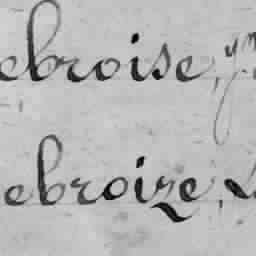 ebroise,
ebroize,